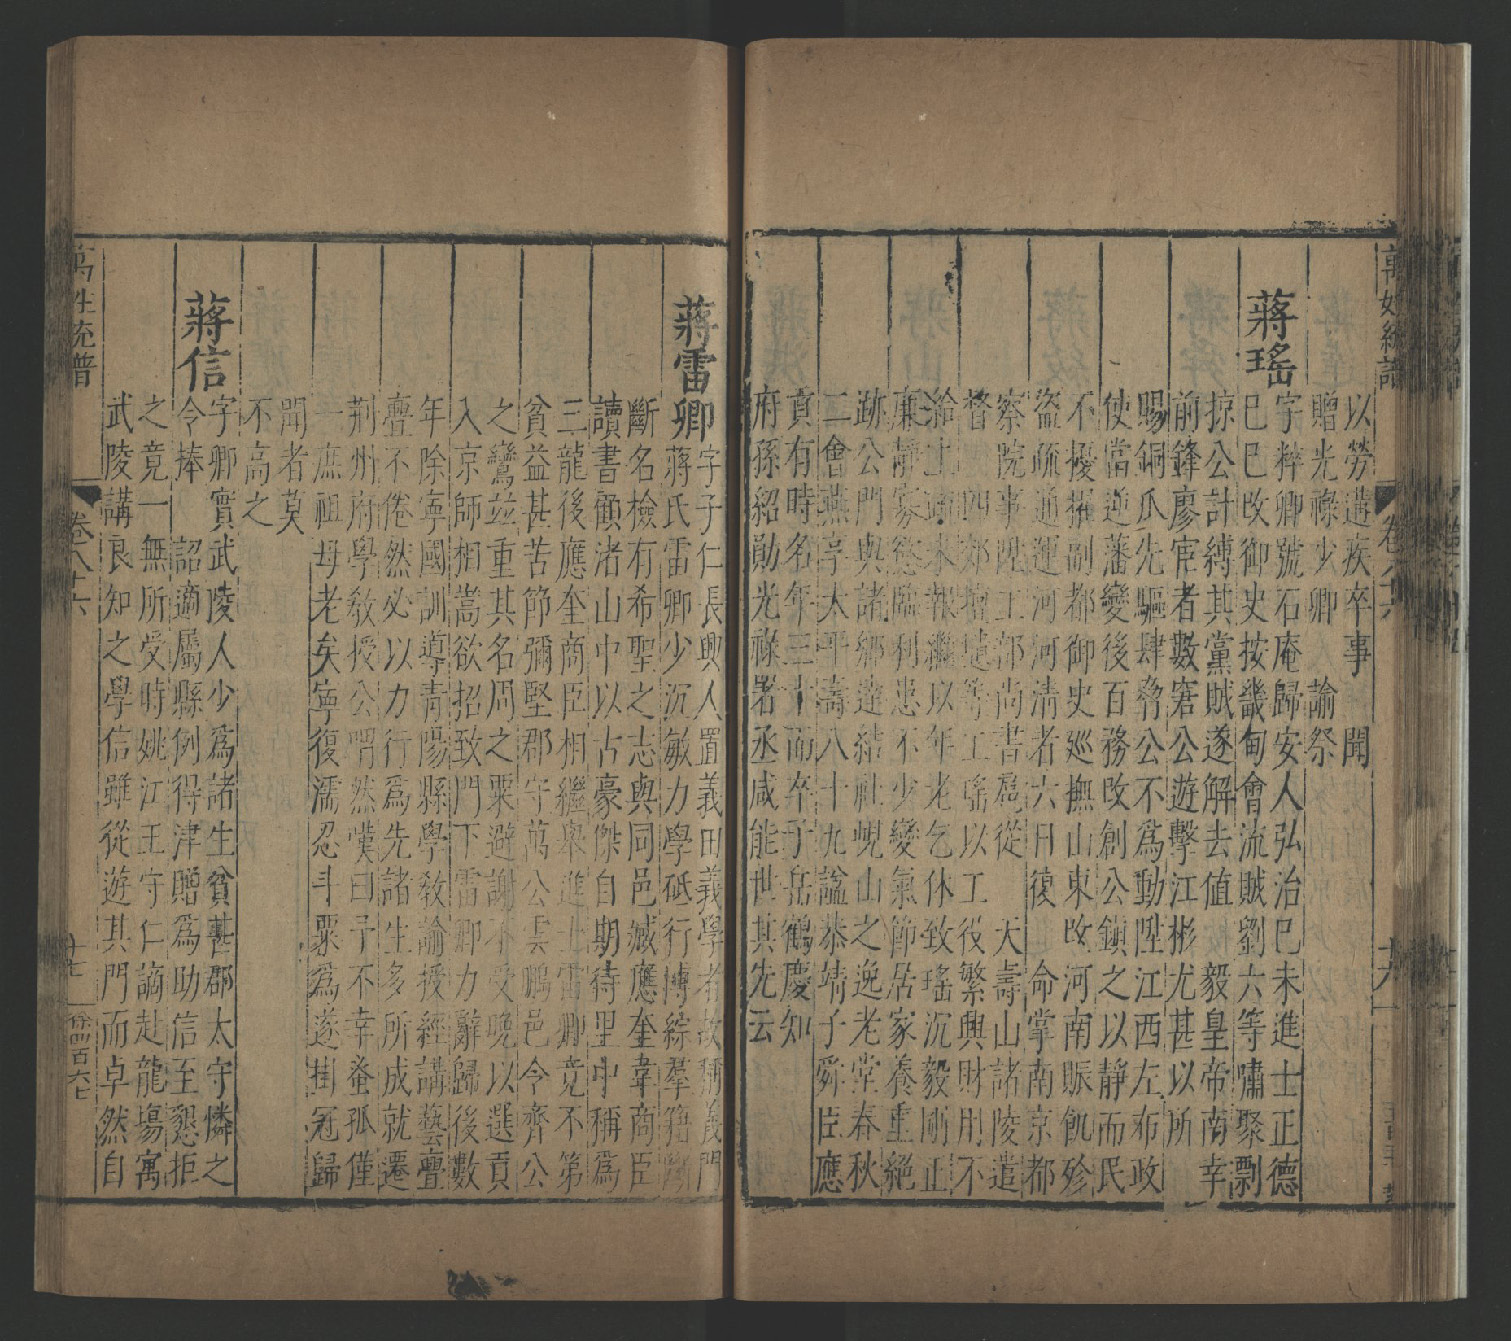 以勞遘疾卒事　聞
贈光祿少卿　諭祭
蔣瑤
字粹卿號石庵歸安人弘治己未進士正德
己巳改御史按畿甸會流賊劉六等嘯聚剽
掠公計縛其黨賊遂解去值　毅皇帝南幸
前鋒廖宦者數窘公遊擊江彬尤甚以所
賜銅瓜先驅肆脅公不為動陞江西左布政
使當逆藩變後百務改創公鎮之以靜而民
不擾擢副都御史巡撫山東改河南賑飢殄
盜疏通運河河清者六日復　命掌南京都
察院事陞工部尚書扈從　天壽山諸陵遣
督　四郊壇壝等工瑤以工役繁興財用不
淪上疏未報繼以年老乞休致瑤沉毅剛正
廉靜家慾臨利患不少變氣節居家養重絕
跡公門與諸鄉達結社峴山之逸老堂春秋
二會燕享大平壽八十九諡恭靖子舜臣應
貢有時名年三十而卒子岳鶴慶知
府孫紹勛光祿署丞咸能世其先云
萬姓統譜
卷八十六
十六
蔣雷卿
字子仁長興人置義田義學者故稱義門
蔣氏雷卿少沉敏力學砥行博綜羣籍
斷名檢有希聖之志與同邑臧應奎韋商臣
讀書顧渚山中以古豪傑自期待里中稱為
三龍後應奎商臣相繼舉進士雷卿竟不第
貧益甚苦節彌堅郡守萬公雲鵬邑令齊公
之鸞並重其名周之粟避謝不受晚以選貢
入京師相嵩欲招致門下雷卿力辭歸後數
年除寧國訓導青陽縣學敎諭授經講藝亹
亹不倦然必以力行為先諸生多所成就遷
荆州府學敎授公喟然嘆曰予不幸蚤孤僅
一庶祖母老矣寧復濡忍斗粟為遂掛冠歸
聞者莫
不高之
蔣信
字卿實武陵人少為諸生貧甚郡太守憐之
令捧　詔適屬縣例得津贈為助信至懇拒
之竟一無所受時姚江王守仁謫赴龍塲寓
武陵講良知之學信雖從遊其門而卓然自
萬姓統譜
卷八十六
十七